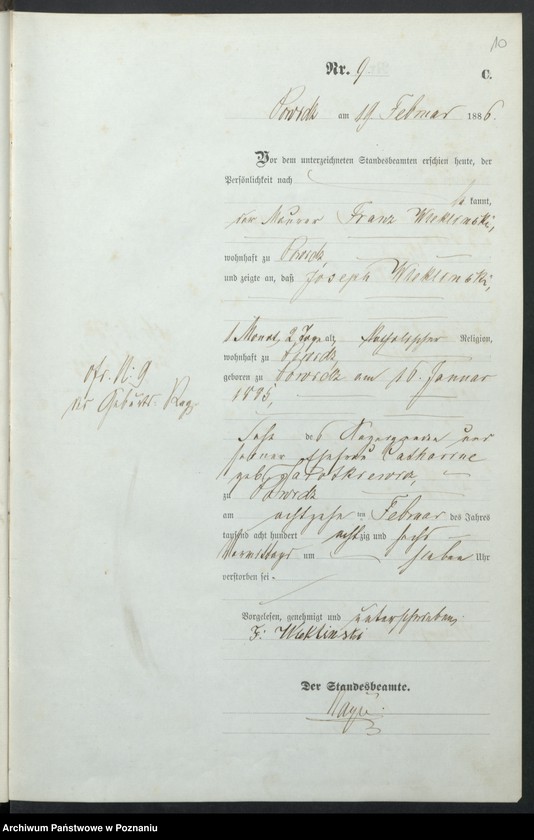 10
Nr. 9
C.
Powidz am 19 Februar 1886.
Vor dem unterzeichneten Standesbeamten erschien heute, der
Persönlichkeit nach
be kannt,
der Maurer Franz Weklinski,
wohnhaft zu Powidz
und zeigte an, daß Joseph Weklinski,
1 Monat, 2 Tage alt, katholischer Religion,
wohnhaft zu Powidz
geboren zu Powidz am 16. Januar
Sohn des und
seiner Ehefrau Catharine
geb
zu Powidz
am achtzehn ten Februar des Jahres
tausend acht hundert achtzig und sechs
Vormittags um sieben Uhr
verstorben sei -
Vorgelesen, genehmigt und unterschrieben
F. Weklinski
Der Standesbeamte.
cfr. N: 9
des Geburts Reg.
Archiwum Państwowe w Poznaniu